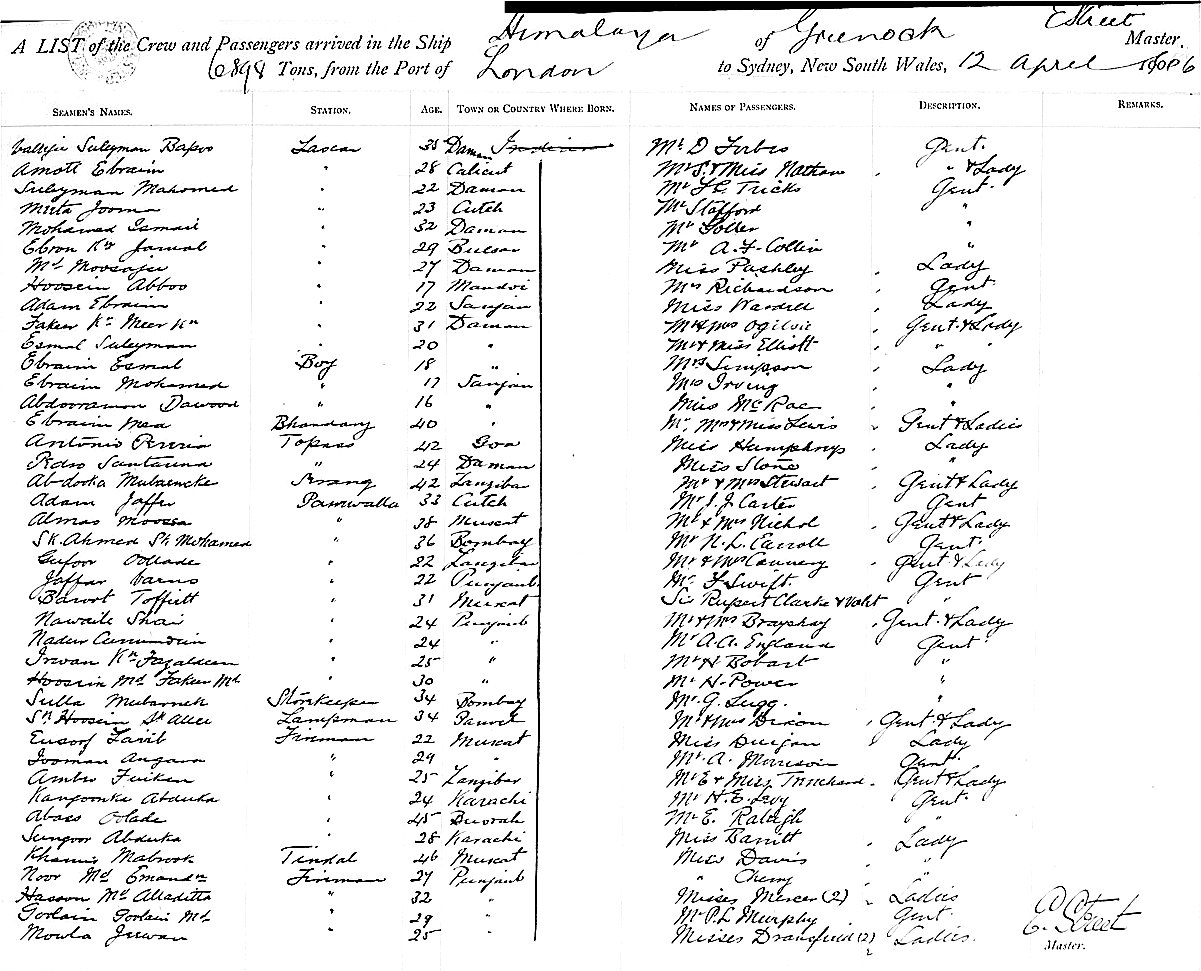 A LIST of the Crew and Passengers arrived in the Ship Himalaya of Greenock E Street Master.
6898 Tons, from the Port of London to Sydney, New South Wales, 12 April
SEAMEN'S NAMES. STATION. AGE. TOWN OR COUNTRY WHERE BORN. NAMES OF PASSENGERS. DESCRIPTION. REMARKS.
Suleyman Lascar 35 Daman Mr D Forbes Gent.
Amott Ebraim " 28 Calicut Mr S. & Miss Nathan " & Lady
Suleyman Mahomed " 22 Daman Mr F. C. Tricks Gent.
Jooma " 23 Cutch Mr Stafford "
Mohamad Esmail " 32 Daman Mr "
Ebram Kn Jamal " 29 Bulsar Mr A. F. Collin "
Md Moosajee " 27 Daman Miss Pashley Lady
Hoosein Abboo " 17 Mandvi Mrs Richardson Gent
Adam Ebraim " 22 Sanjan Miss Wardell Lady
Faker Kn Meer Kn " 31 Daman Mr & Mrs Ogilvie Gent. & Lady
Esmal Suleyman " 20 " Mr & Miss Elliott " "
Ebraim Esmal Boy 18 " Mrs Simpson Lady
Ebraim Mohamed " 17 Sanjan Mrs Irving "
Abdooramon Dawood " 16 " Miss McRae "
Ebraim Bhandary 40 " Mr, Mrs & Miss Lewis Gent & Ladies
Antonio Pereria Topass 42 Goa Miss Humphrys Lady
Pedro Santanna " 24 Daman Miss Stone "
Abdooka Mubarucke Serang 42 Zanzibar Mr & Mrs Stewart Gent & Lady
Adam Jaffer 33 Cutch Mr J. J. Carter Gent
Almas Moossa " 38 Muscat Mr & Mrs Nichol Gent & Lady
Sk. Ahmed Sk Mohamed " 36 Bombay Mr N. L. Carroll Gent.
Gufoor Oollade " 22 Zanzibar Mr & Mrs Cannery Gent & Lady
Jaffar " 22 Punjaub Mr F Swift. Gent
Toffiett " 31 Muscat Sir Rupert Clarke & Valet "
Shai " 24 Punjaub Mr & Mrs Brayshay Gent. & Lady
Nadur " 24 " Mr A. A. England Gent.
Kn Fazaldeen " 25 " Mr H Bobart "
Hoosein Md Faker Md " 30 " Mr H. Power "
Sulla Mubaruck Storekeeper 34 Bombay Mr G. Sugg. "
Sk Hoosein Sk Allee Lampman 34 Panvel Mr & Mrs Dixon Gent & Lady
Eusoof Fireman 22 Muscat Miss Duigan Lady
Jooman Angara " 29 " Mr. A. Morrison Gent.
Ambro " 25 Zanzibar Mr E & Miss Trenchard Gent & Lady
Kangoonka Abduka " 24 Karachi Mr H. E. Levy Gent.
Abass Oolade " 45 Mr E. Raleigh "
Sungoor Abduka " 28 Karachi Miss Barritt Lady
Khamis Mabrook Tindal 46 Muscat Miss Davis "
Noor Md Fireman 27 Punjaub " Cherry "
Hasson Md Alladitta " 32 " Misses Mercer (2) Ladies
Goolam Md " 29 " Mr P. L Murphy Gent.
Mowla Jeewan " 25 " Misses Dransfield (2) Ladies.
E. Street
Master.